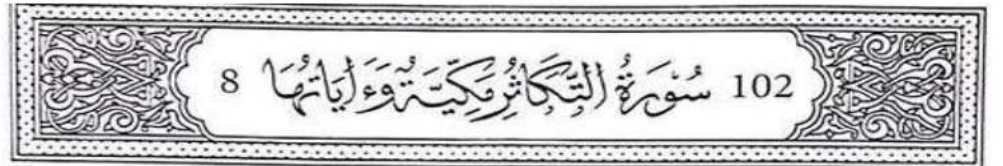 102 سُورَةُ التَّكَاثُرِ مَكِّيَّةٌ وَءَايَاتُهَا 8